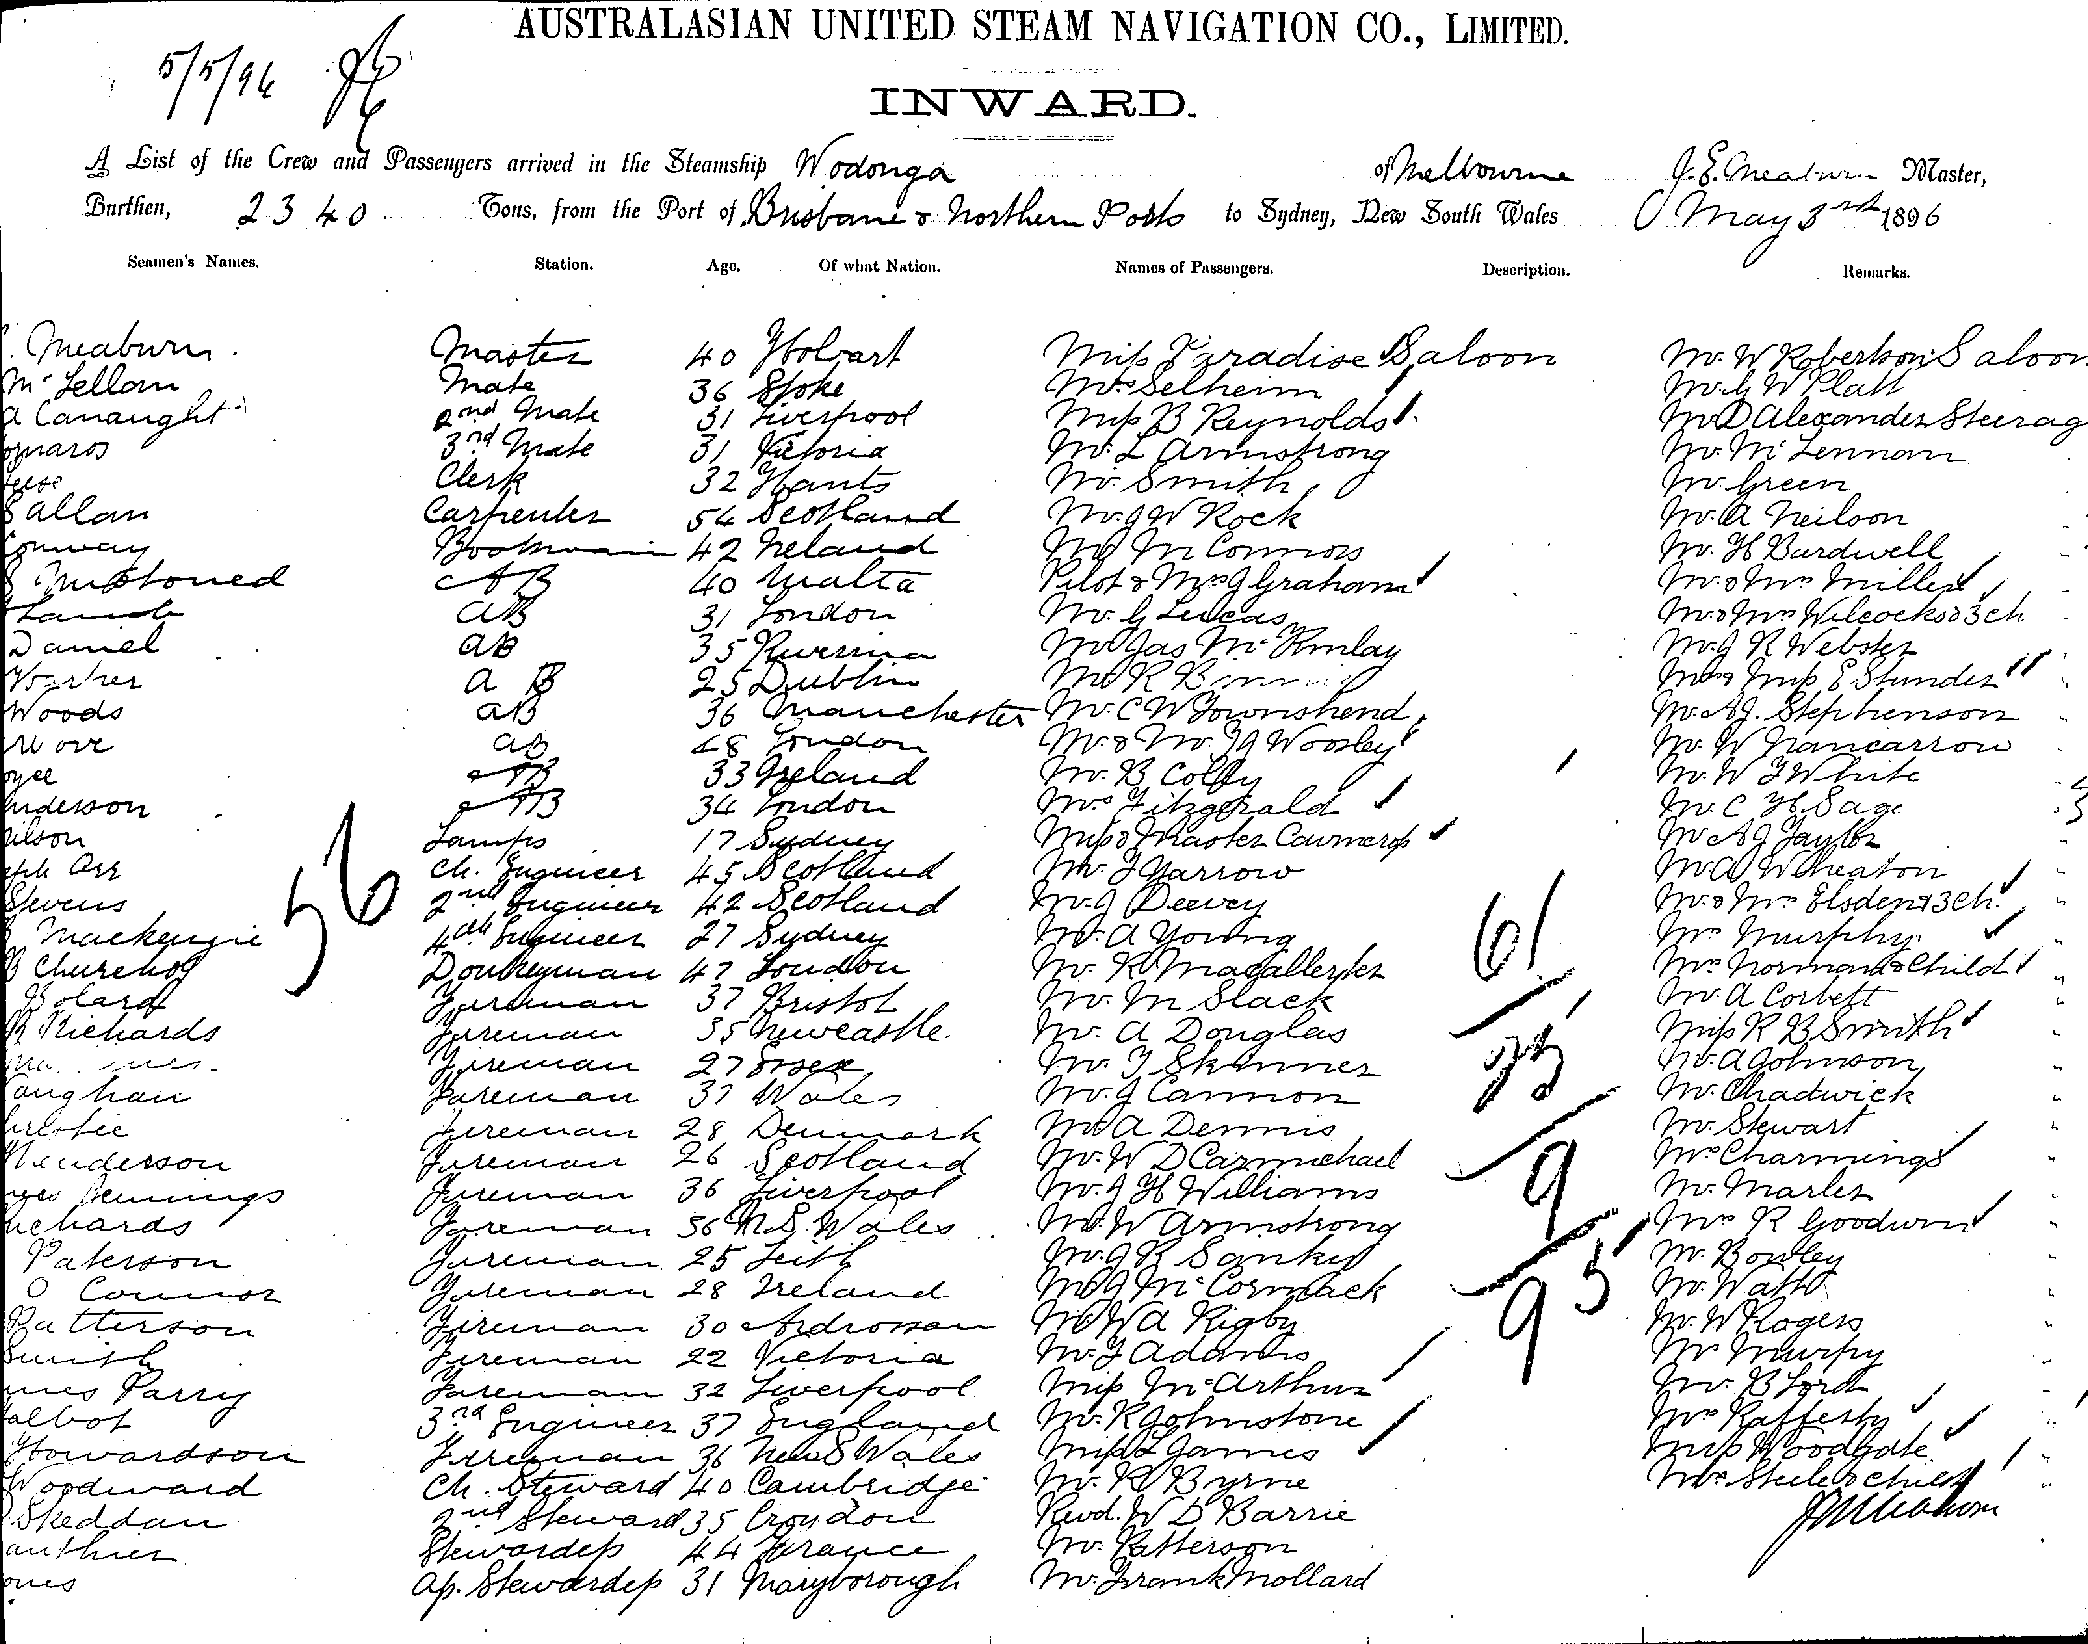 AUSTRALASIAN UNITED STEAM NAVIGATION CO., LIMITED.
5/5/96
INWARD.
A List of the Crew and Passengers arrived in the Steamship Wodonga of Melbourne J. E. Meaburn Master,
Burthen, 2340 Tons, from the Port of Brisbane & Northern Ports to Sydney, New South Wales May 3rd 1896
Seamen's Names. Station. Age. Of what Nation. Names of Passengers. Description. Remarks.
Meaburn Master 40 Hobart Miss Paradise Saloon Mr. W Robertson Saloon
McLellan Mate 36 Stoke Mrs Selheim Mr. G W Platt
a Canaught 2nd Mate 31 Liverpool Miss B Reynolds Mr D Alexander Steerag
omaros 3rd Mate 31 Victoria Mr. L Armstrong Mr. McLennan
Clerk 32 Hants Mr. Smith Mr. Green
allan Carpenter 54 Scotland Mr. J W Rock Mr. A Neilson
onway 42 Ireland Mr J McConnors Mr. H Bardwell
AB 40 Malta Pilot & Mrs J Graham Mr. & Mrs Miller
Lamb AB 31 London Mr. G Lucas Mr. & Mrs Wilcocks & 3 ch
Daniel AB 35 Riverina Mr Jas McKinlay Mr. J R Webster
AB 25 Dublin Mr R Miss E Stunder
Woods AB 36 Manchester Mr. C W Townshend Mr. A J. Stephenson
AB 48 London Mr. & Mr. Woosley Mr. W Nancarrow
oyce AB 33 Ireland Mr. B Colby Mr. W J White
nderson AB 34 London Mrs Fitzgerald Mr. C H. Sage
ilson Lamps 17 Sydney Miss & Master Mr A J Taylor
eph Orr Ch. Engineer 45 Scotland Mr. J Yarrow Mr A Wheaton
Stevens 2nd Engineer 42 Scotland Mr. J Deevey Mr. & Mrs Elsden & 3 ch.
56
Mackenzie 4th Engineer 27 Sydney Mr. A Young Mrs Murphy
61
Donkeyman 47 London Mr. R Macallester Mrs Norman & Child
Bolard Fireman 37 Bristol Mr. M Slack Mr. A Corbett
R Richards Fireman 35 Newcastle. Mr. A Douglas Miss R B Smith
Fireman 27 Essex Mr. J Skinner Mr. A Johnson
aughan Fireman 37 Wales Mr. J Cannon Mr. Chadwick
hristie Fireman 28 Denmark Mr A Dennis Mr. Stewart
Henderson Fireman 26 Scotland Mr. W D Carmichael Mrs Charmings
9
Jennings Fireman 36 Liverpool Mr. J H Williams Mr. Marles
ichards Fireman 36 N. S. Wales Mr. W Armstrong Mrs R Goodwin
Paterson Fireman 25 Leith Mr. J R Sankey Mr. Bowley
O Connor Fireman 28 Ireland Mr J McCormack Mr. Watt
95
Patterson Fireman 30 Ardrossan Mr W A Rigby Mr. W Rogers
Smith Fireman 22 Victoria Mr. J Adams Mr Murphy
mes Parry Fireman 32 Liverpool Miss McArthur Mr. B Lord
albot 3rd Engineer 37 England Mr. R Johnstone Mrs Rafferty
Howardson Fireman 36 New S Wales Miss L James Miss Woodgate
Woodward Ch. Steward 40 Cambridge Mr. R Byrne Mrs. Steele & child
Skeddan 2nd Steward 35 Croydon Revd. W D Barrie
authier Stewardess 44 France Mr. Patterson
ones Ap. Stewardess 31 Maryborough Mr. Frank Mollard